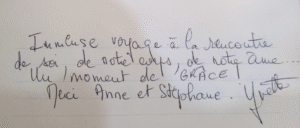 Immense voyage à la rencontre
de soi, de votre corps, de notre âme...
Un moment de GRÂCE!
Merci Anne et Stéphane. Yvette